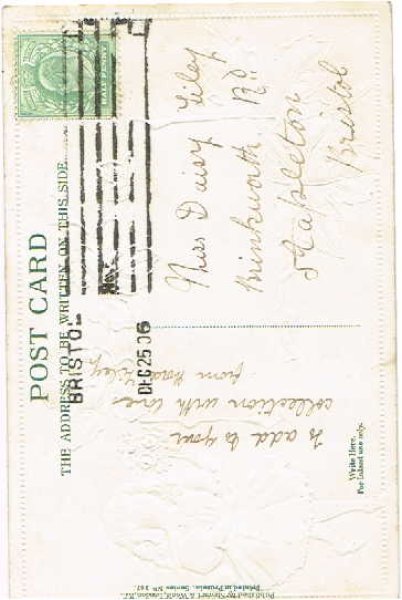 POST CARD
THE ADDRESS TO BE WRITTEN ON THIS SIDE.
HALF PENNY
BRISTOL
DEC 25 06
To add to your
collection with love
from
Write Here.
For Inland use only.
Miss Daisy Liley
Minkworth Rd
Stapleton
Bristol
Published by Stewart & Woolf, London, E.C.
Printed in Prussia. Series No